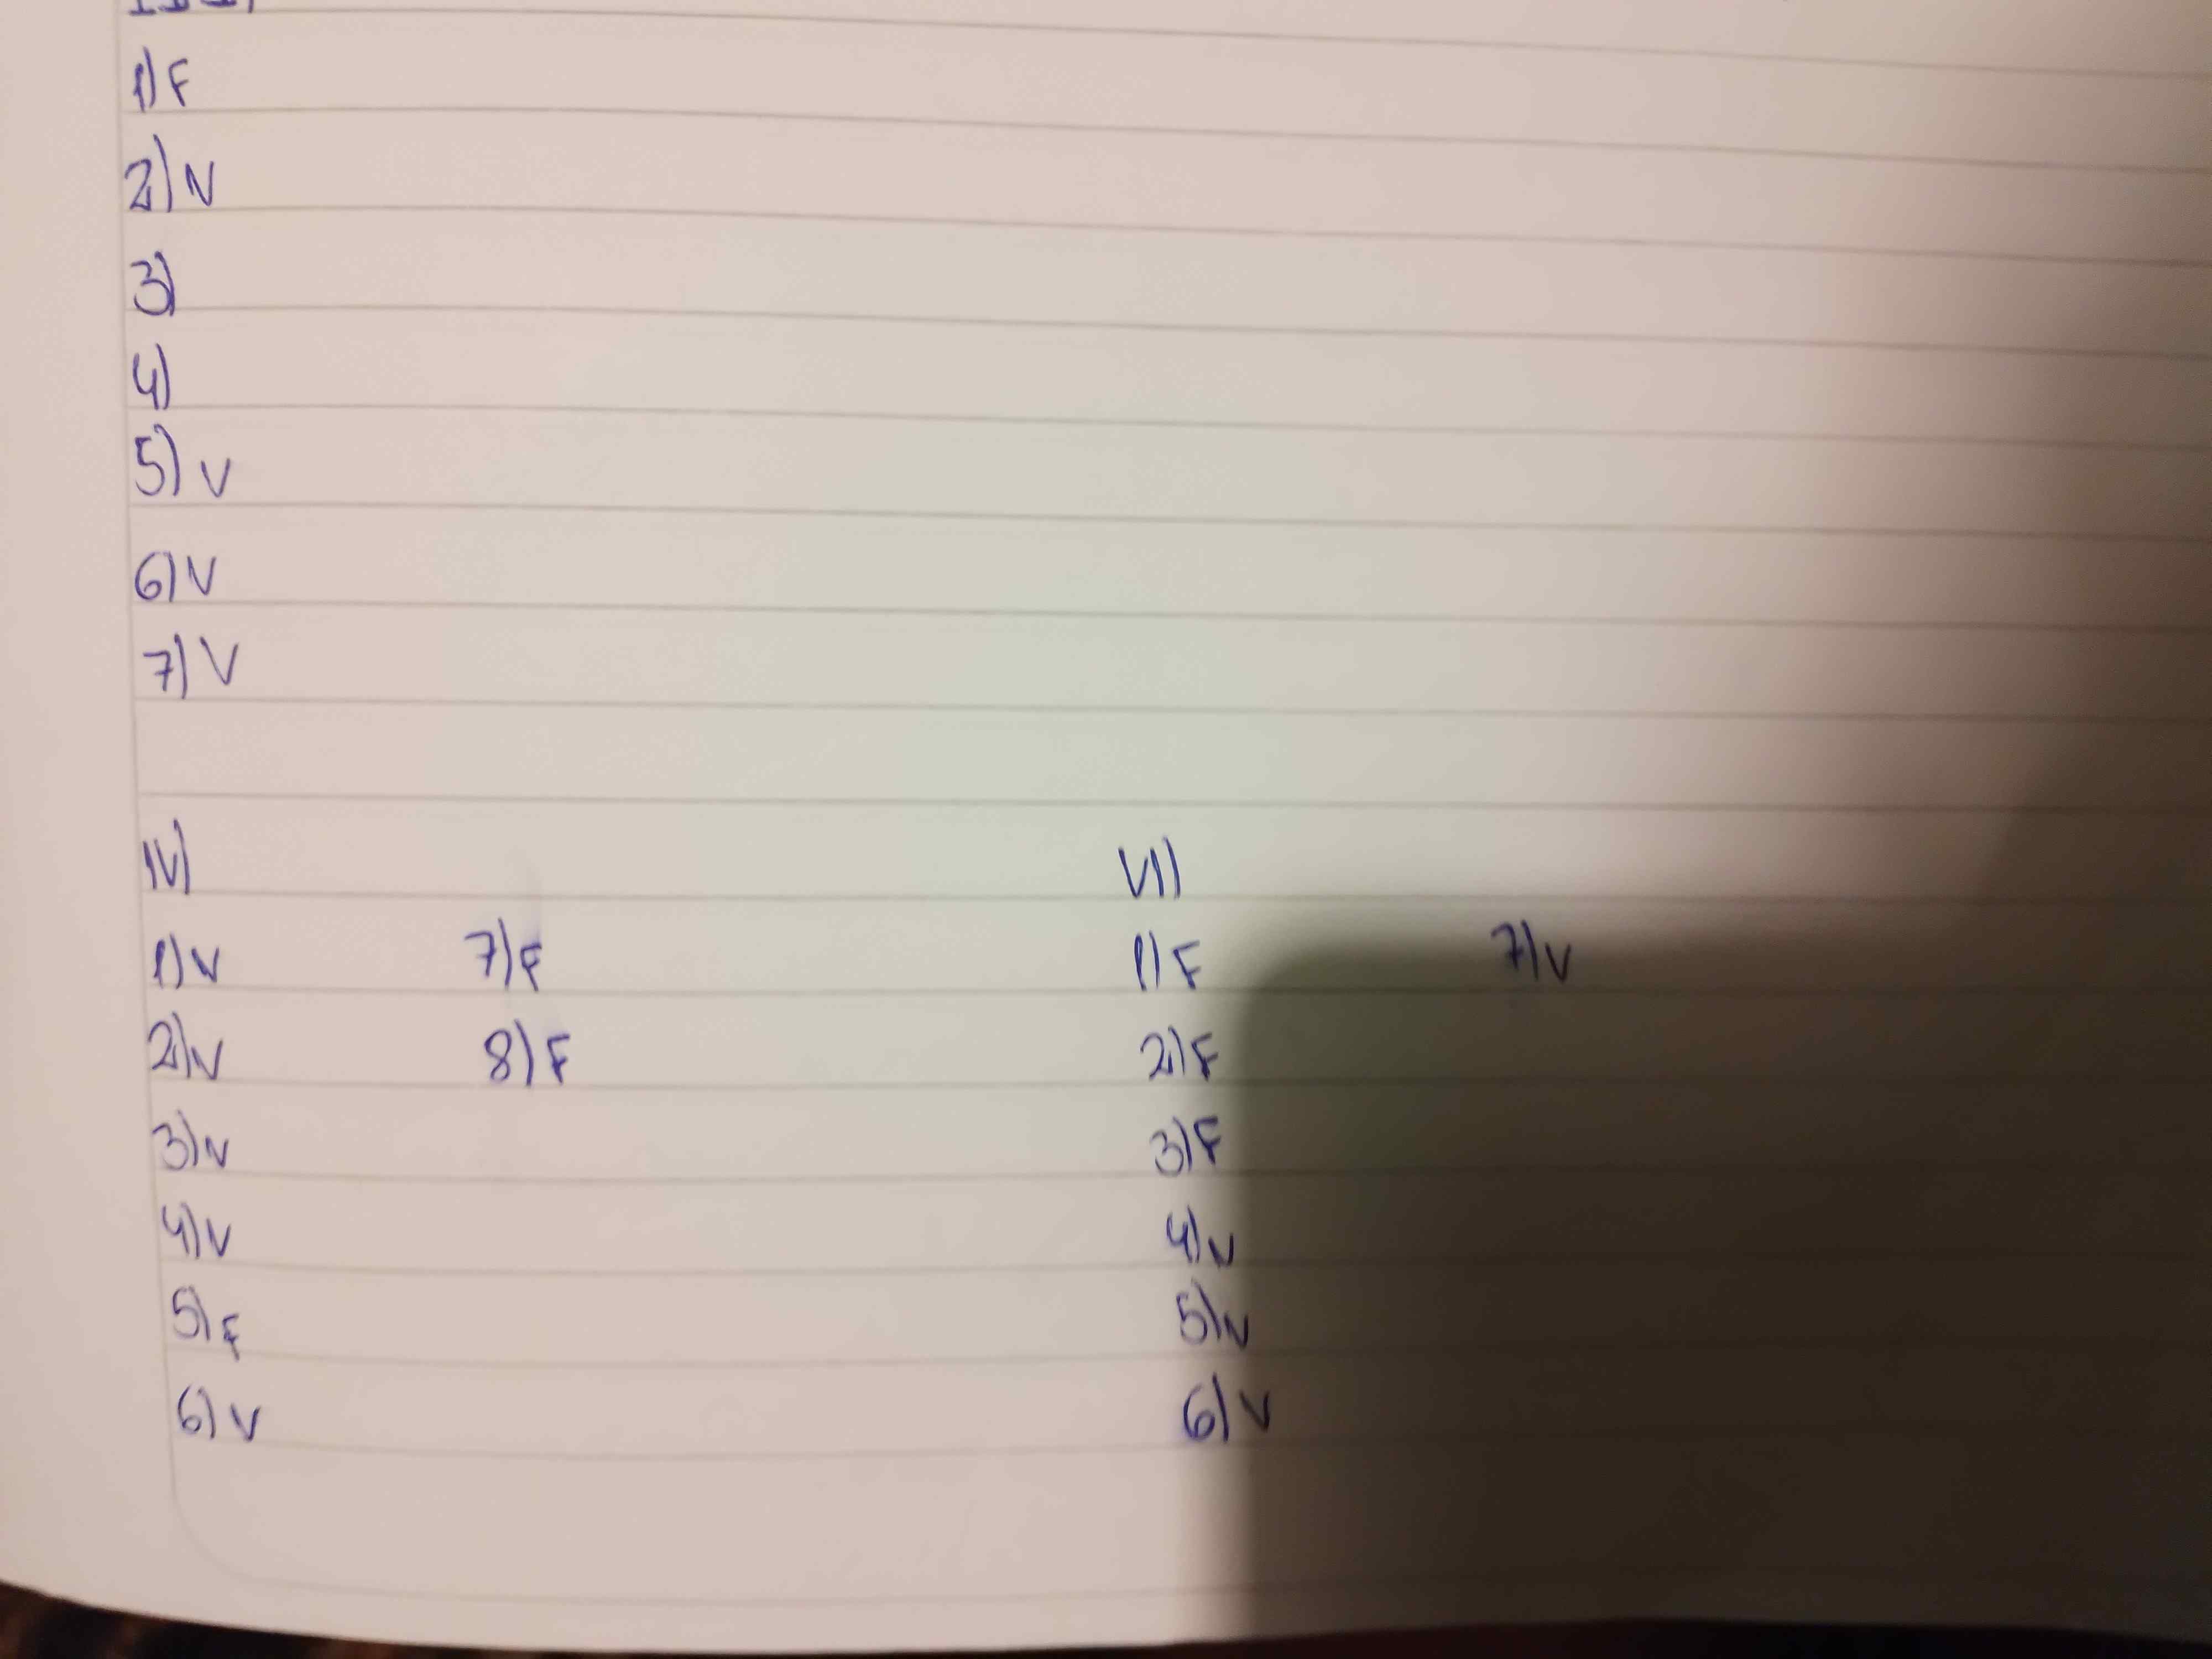 1) F
2) V
3)
4)
5) V
6) V
7) V
IV)
1) V
2) V
3) V
4) V
5) F
6) V
7) F
8) F
VI)
1) F
2) F
3) F
4) V
5) V
6) V
7) V